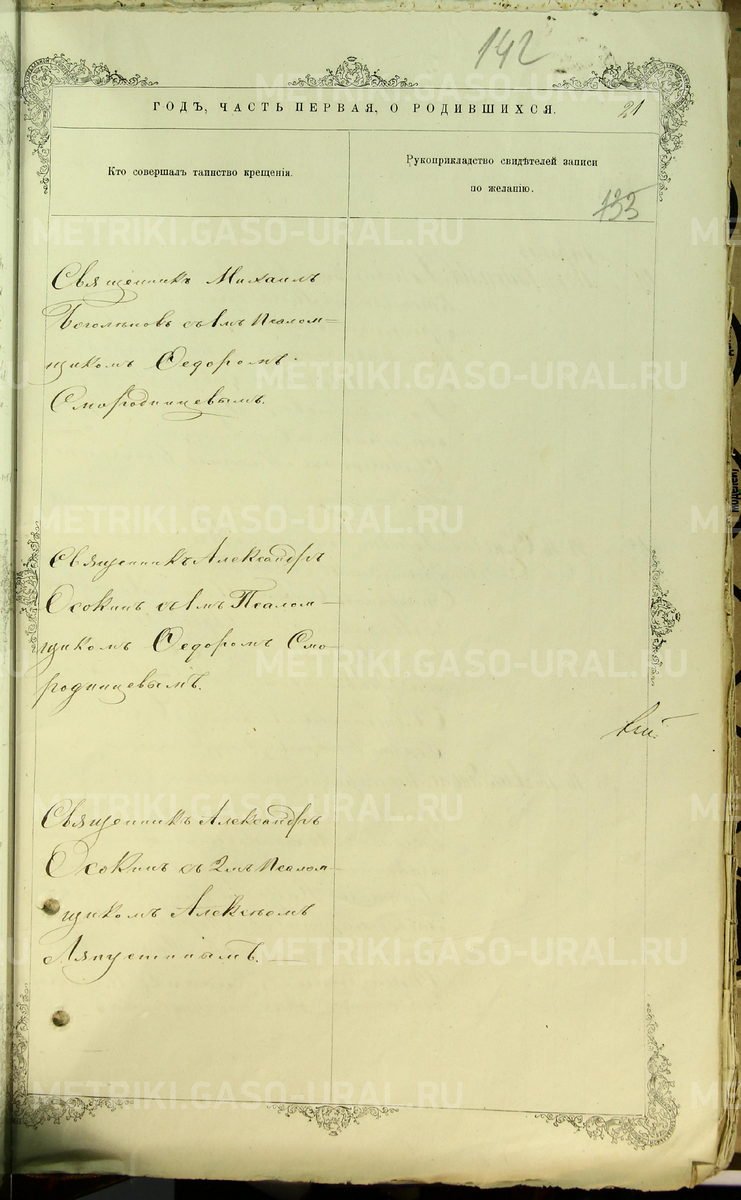 142
ГОДЪ, ЧАСТЬ ПЕРВАЯ, О РОДИВШИХСЯ.
21
Кто совершалъ таинство крещенія.
Рукоприкладство свидѣтелей записи
по желанію.
Священникъ Михаилъ
Боголѣповъ съ 1мъ Псалом=
щикомъ Ѳедоромъ
Смородинцевымъ.
Священникъ Александръ
Осокинъ съ 1мъ Псалом-
щикомъ Ѳедоромъ Смо-
родинцевымъ.
Священникъ Александръ
Осокинъ съ 2мъ Псалом-
щикомъ Алексѣемъ
Ляпустинымъ.
METRIKI.GASO-URAL.RU